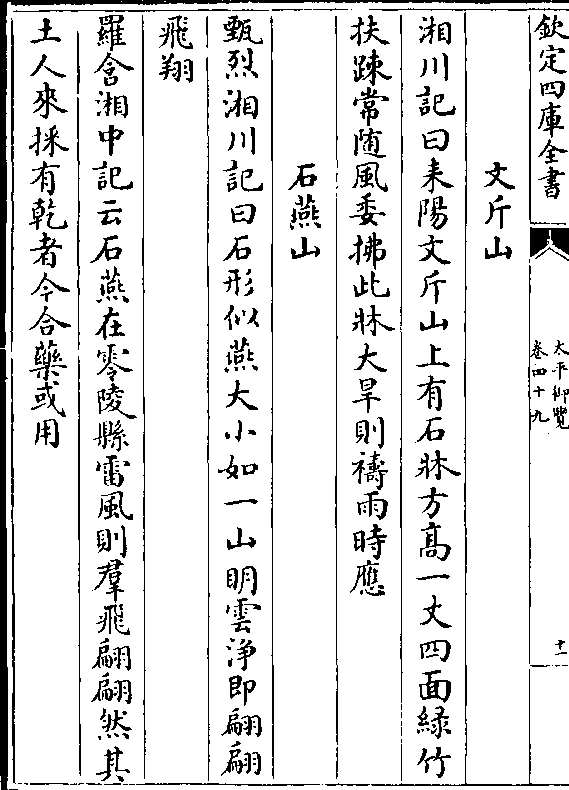 欽定四庫全書
太平御覽
卷四十九
十一
文斤山
湘川記曰耒陽文斤山上有石牀方高一丈四面緑竹
扶踈常随風委拂此牀大旱則禱雨時應
石燕山
甄烈湘川記曰石形似燕大小如一山明雲浄即翩翩
飛翔
羅含湘中記云石燕在零陵縣雷風則羣飛翩翩然其
土人來採有乾者今合藥或用